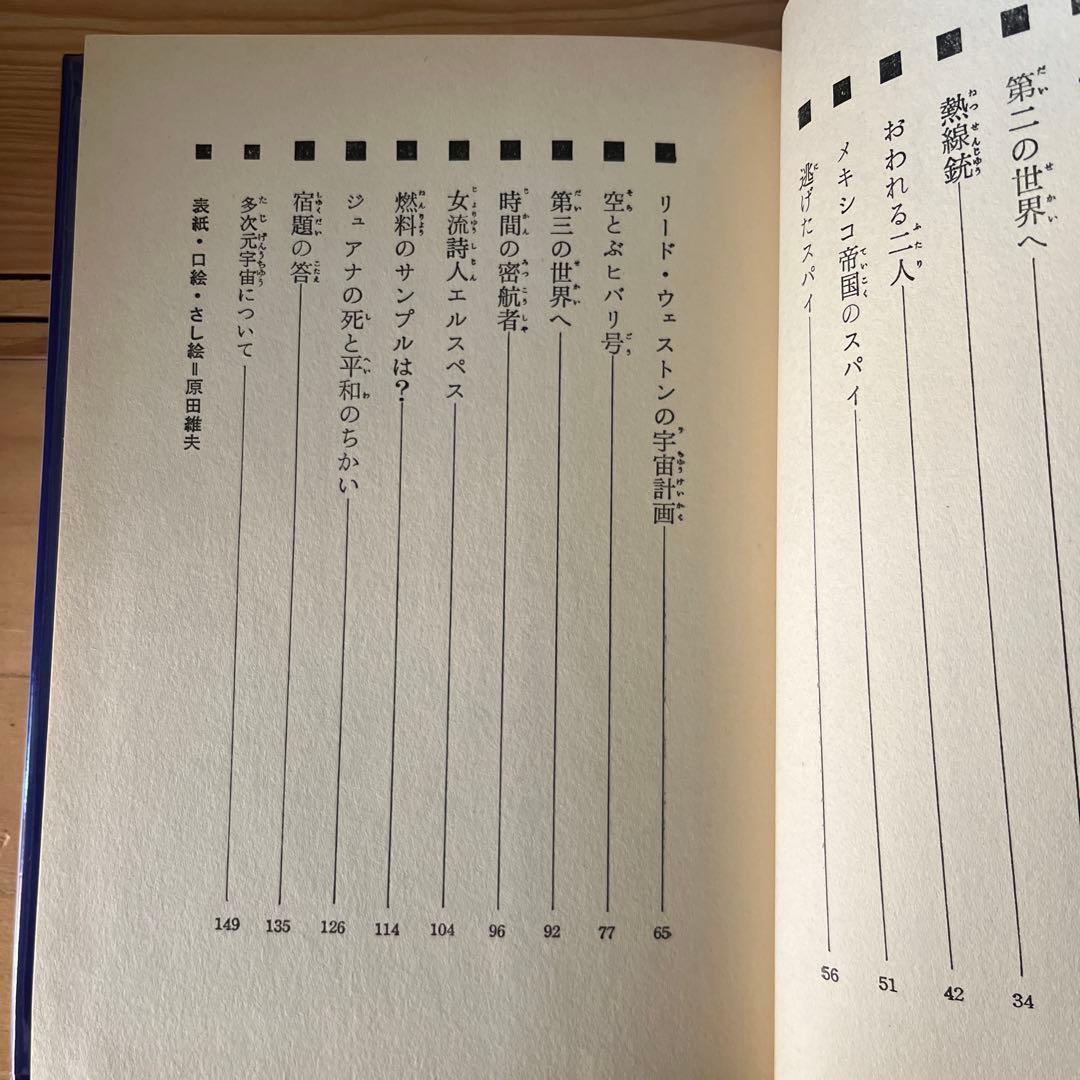 ■第二の世界へ 34
■熱線銃 42
■おわれる二人 51
■メキシコ帝国のスパイ
■逃げたスパイ 56
■リード・ウェストンの宇宙計画 65
■空とぶヒバリ号 77
■第三の世界へ 92
■時間の密航者 96
■女流詩人エルスペス 104
■燃料のサンプルは? 114
■ジュアナの死と平和のちかい 126
■宿題の答 135
■多次元宇宙について 149
■表紙・口絵・さし絵=原田維夫